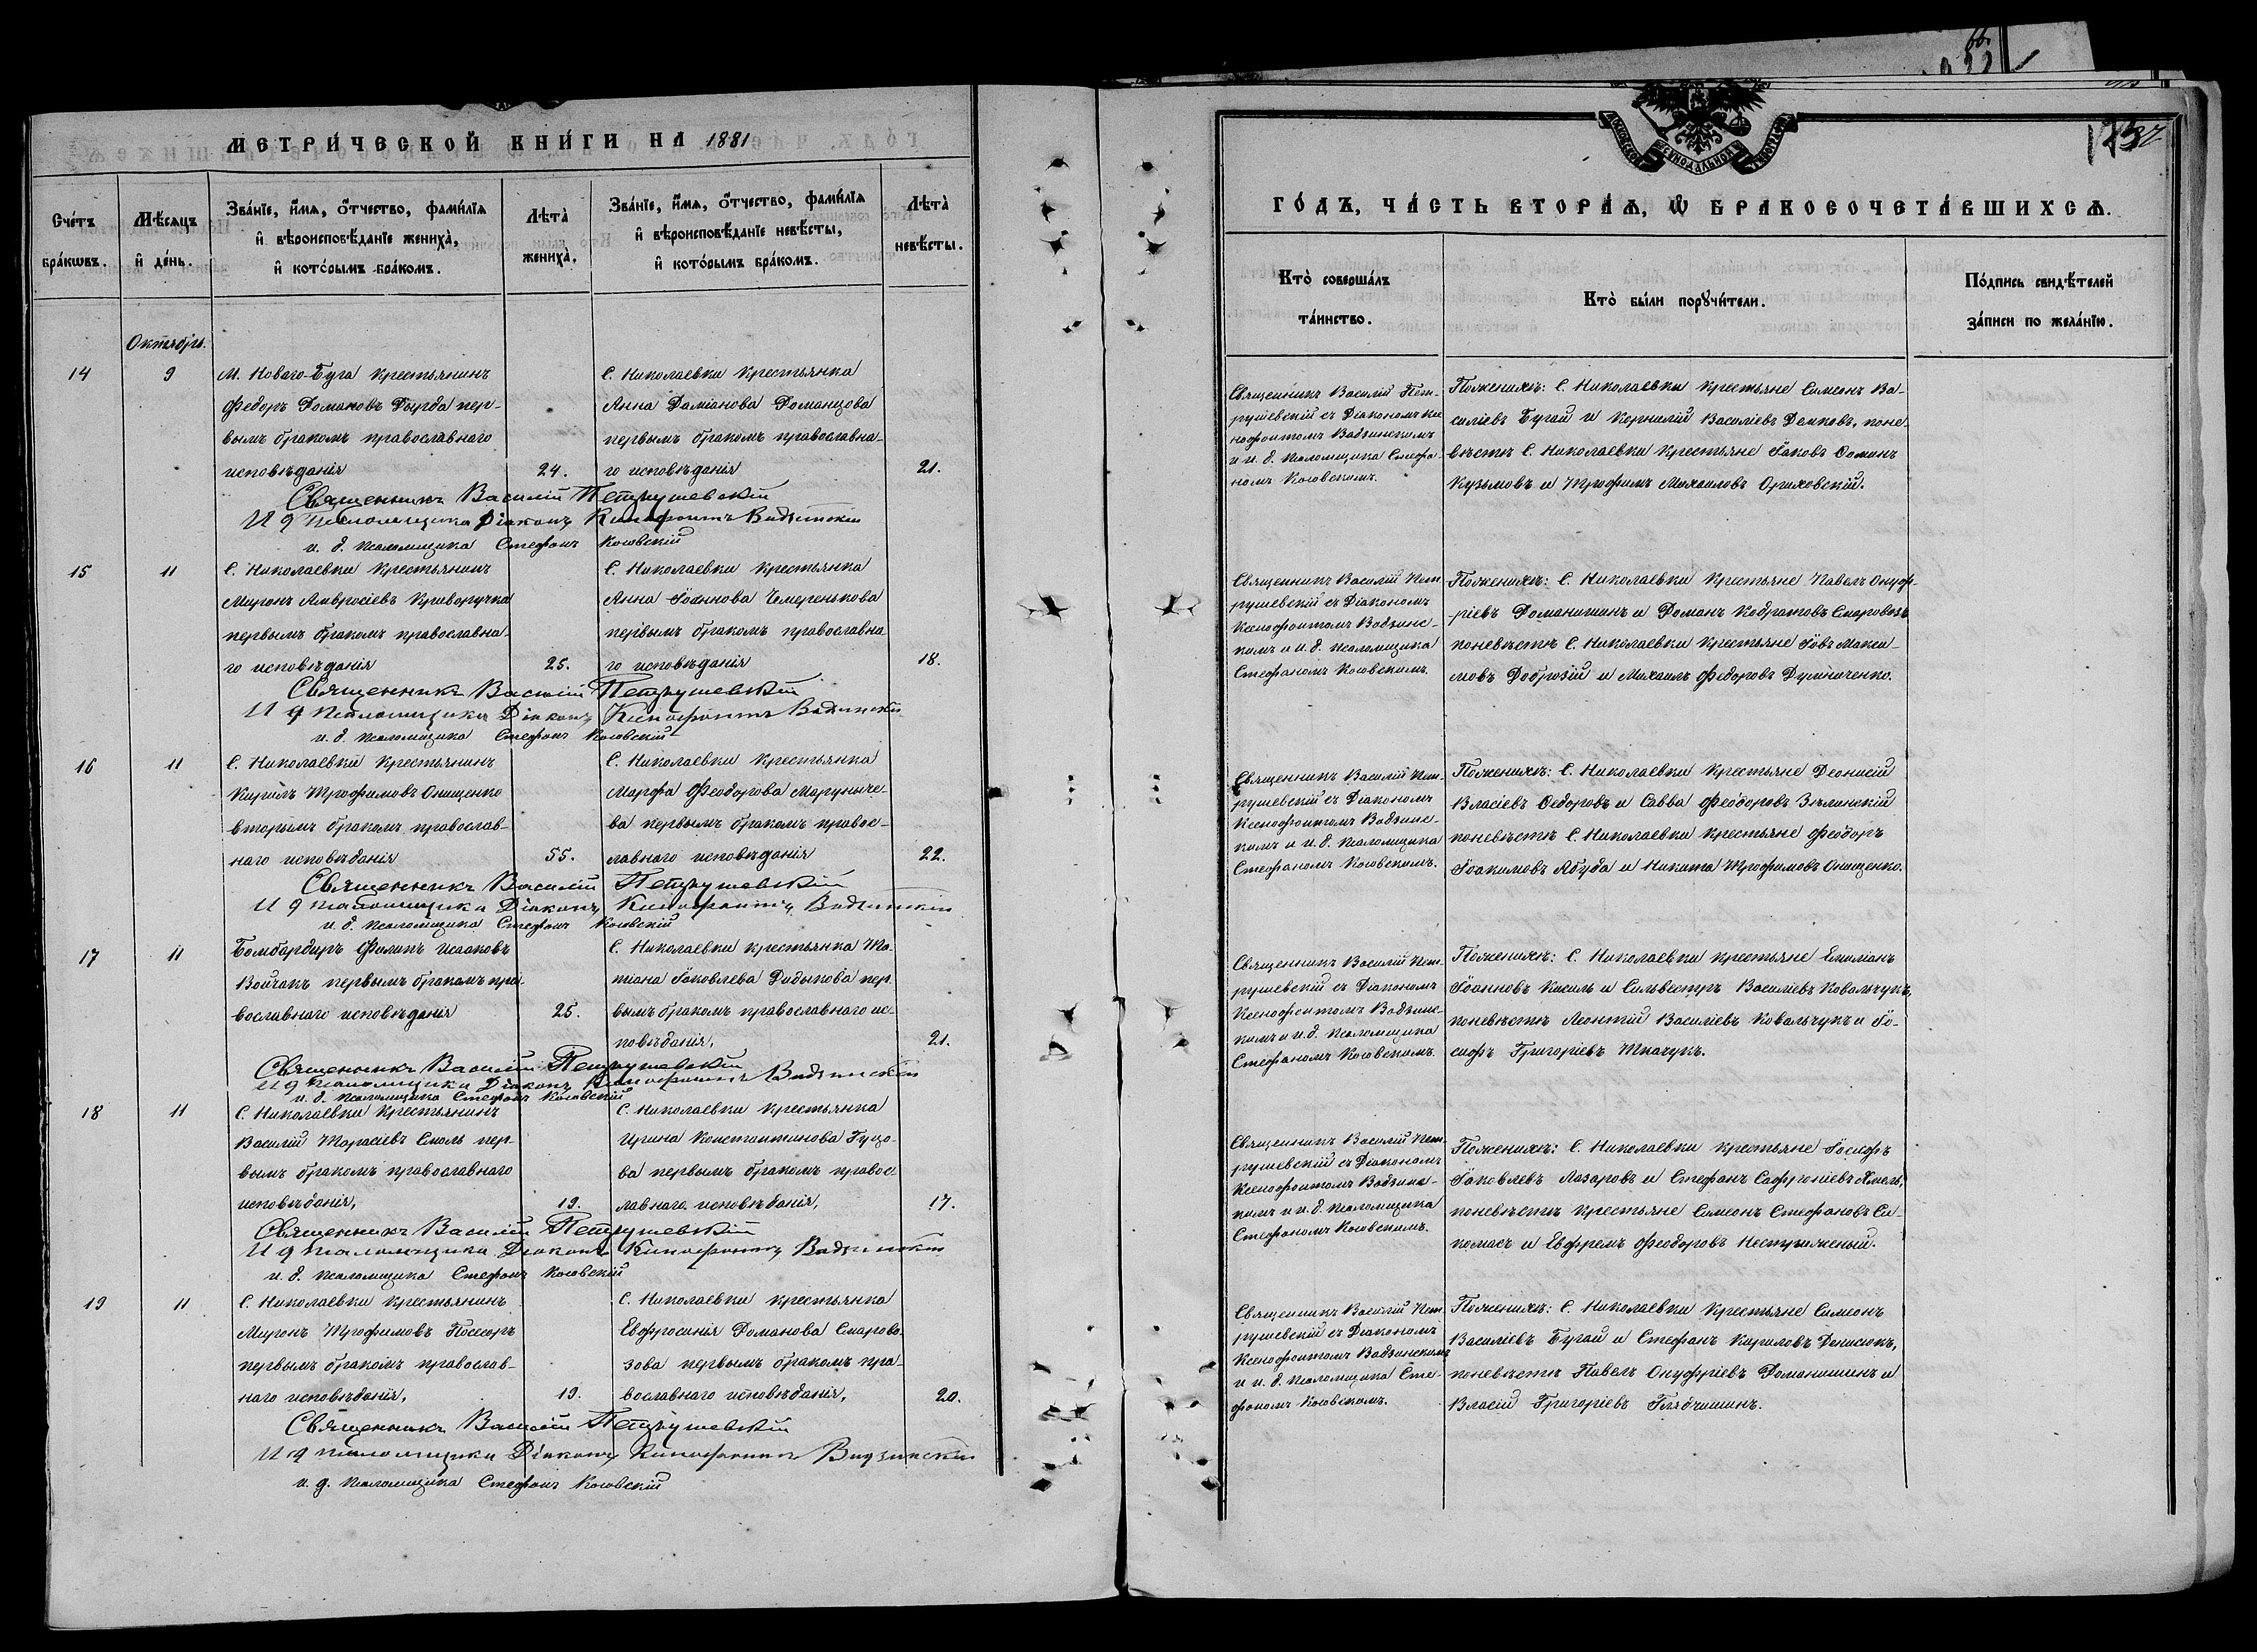 МЕТРИ́ЧЕСКОЙ КНИ́ГИ НА 1881
Сче́тъ бра́кѡвъ.
Мѣ́сѧцъ и҆ де́нь.
Зва́нїе, и҆́мѧ, ѻ҆́тчество, фами́лїѧ
и҆ вѣроисповѣ́данїе жениха̀,
и҆ кото́рымъ бра́комъ.
Лѣта̀
жениха̀.
Зва́нїе, и҆́мѧ, ѻ҆́тчество, фами́лїѧ
и҆ вѣроисповѣ́данїе невѣ́сты,
и҆ кото́рымъ бра́комъ.
Лѣта̀
невѣ́сты.
Октябрь.
14
9
М. Новаго-Буга крестьянинъ
Федоръ Романовъ Дырда пер-
вымъ бракомъ православнаго
исповѣданія
24.
С. Николаевки крестьянка
Анна Даміанова Романцова
первымъ бракомъ православна-
го исповѣданія
21.
Священникъ Василій Петрушевскій
И д псаломщика Діаконъ Ксенофонтъ Вадзинскій
и. д. псаломщика Стефанъ Косовскій
15
11
С. Николаевки крестьянинъ
Миронъ Амвросіевъ Криворучка
первымъ бракомъ православна-
го исповѣданія
25.
С. Николаевки крестьянка
Анна Іоаннова Чемеренькова
первымъ бракомъ православна-
го исповѣданія
18.
Священникъ Василій Петрушевскій
И д псаломщика Діаконъ Ксенофонтъ Вадзинскій
и. д. псаломщика Стефанъ Косовскій
16
11
С. Николаевки крестьянинъ
Кирилъ Трофимовъ Онищенко
вторымъ бракомъ православ-
наго исповѣданія
55.
С. Николаевки крестьянка
Марфа Феодорова Маруныче-
ва первымъ бракомъ правос-
лавнаго исповѣданія
22.
Священникъ Василій Петрушевскій
И д псаломщика Діаконъ Ксенофонтъ Вадзинскій
и. д. псаломщика Стефанъ Косовскій
17
11
Бомбардиръ Филипъ Исааковъ
Войчакъ первымъ бракомъ пра-
вославнаго исповѣданія
25.
С. Николаевки крестьянка Та-
тіана Іаковлева Дидыкова пер-
вымъ бракомъ православнаго ис-
повѣданія,
21.
Священникъ Василій Петрушевскій
И д псаломщика Діаконъ Ксенофонтъ Вадзинскій
и. д. псаломщика Стефанъ Косовскій
18
11
С. Николаевки крестьянинъ
Василій Тарасіевъ Смоль пер-
вымъ бракомъ православнаго
исповѣданія,
19.
С. Николаевки крестьянка
Ирина Константинова Гуцо-
ва первымъ бракомъ правос-
лавнаго исповѣданія,
17.
Священникъ Василій Петрушевскій
И д псаломщика Діаконъ Ксенофонтъ Вадзинскій
и. д. псаломщика Стефанъ Косовскій
19
11
С. Николаевки крестьянинъ
Миронъ Трофимовъ Посесоръ
первымъ бракомъ православ-
наго исповѣданія,
19.
С. Николаевки крестьянка
Евфросинія Романова Старово-
зова первымъ бракомъ пра-
вославнаго исповѣданія,
20.
Священникъ Василій Петрушевскій
И д псаломщика Діаконъ Ксенофонтъ Вадзинскій
и. д. псаломщика Стефанъ Косовскій
ГО́ДЪ, ЧА́СТЬ ВТОРА́Ѧ, Ѡ҆ БРАКОСОЧЕТА́ВШИХСѦ.
Кто̀ соверша́лъ
та́инство.
Кто̀ бы́ли порꙋчи́тели.
По́дпись свидѣ́телей
за́писи по жела́нїю.
Священникъ Василій Пет-
рушевскій съ Діакономъ Ксе-
нофонтомъ Вадзинскимъ
и и. д. псаломщика Стефа-
номъ Косовскимъ.
По женихѣ: С. Николаевки крестьяне Симеонъ Ва-
силіевъ Бугай и Корнилій Василіевъ Демковъ, по не-
вѣстѣ С. Николаевки крестьяне Іаковъ Фоминъ
Кузьмовъ и Трофимъ Михаиловъ Ориховскій.
Священникъ Василій Пет-
рушевскій съ Діакономъ
Ксенофонтомъ Вадзинс-
кимъ и и. д. псаломщика
Стефаномъ Косовскимъ.
По женихѣ: С. Николаевки крестьяне Павелъ Онуф-
ріевъ Романишинъ и Романъ Кодратовъ Старовозъ
по невѣстѣ С. Николаевки крестьяне Іовъ Макси-
мовъ Доброзій и Михаилъ Федоровъ Думниченко.
Священникъ Василій Пет-
рушевскій съ Діакономъ
Ксенофонтомъ Вадзинс-
кимъ и и. д. псаломщика
Стефаномъ Косовскимъ.
По женихѣ: С. Николаевки крестьяне Деонисій
Власіевъ Федоровъ и Савва Феодоровъ Зѣлинскій
по невѣстѣ С. Николаевки крестьяне Феодоръ
Іоакимовъ Ябуда и Никита Трофимовъ Онищенко.
Священникъ Василій Пет-
рушевскій съ Діакономъ
Ксенофонтомъ Вадзинс-
кимъ и и. д. псаломщика
Стефаномъ Косовскимъ.
По женихѣ: С. Николаевки крестьяне Емиліанъ
Іоанновъ Кисиль и Сильвестръ Василіевъ Ковальчукъ,
по невѣстѣ Леонтій Василіевъ Ковальчукъ и Іо-
сифъ Григоріевъ Ткачукъ.
Священникъ Василій Пет-
рушевскій съ Діакономъ
Ксенофонтомъ Вадзинс-
кимъ и и. д. псаломщика
Стефаномъ Косовскимъ.
По женихѣ: С. Николаевки крестьяне Іосифъ
Іаковлевъ Лазаровъ и Стефанъ Софроніевъ Хмель,
по невѣстѣ крестьяне Симеонъ Стефановъ Си-
комасъ и Евфремъ Феодоровъ Нестриженый.
Священникъ Василій Пет-
рушевскій съ Діакономъ
Ксенофонтомъ Вадзинскимъ
и и. д. псаломщика Сте-
фаномъ Косовскимъ.
По женихѣ: С. Николаевки крестьяне Симеонъ
Василіевъ Бугай и Стефанъ Кириловъ Денисюкъ,
по невѣстѣ Павелъ Онуфріевъ Романишинъ и
Власій Григоріевъ Глядчишинъ.